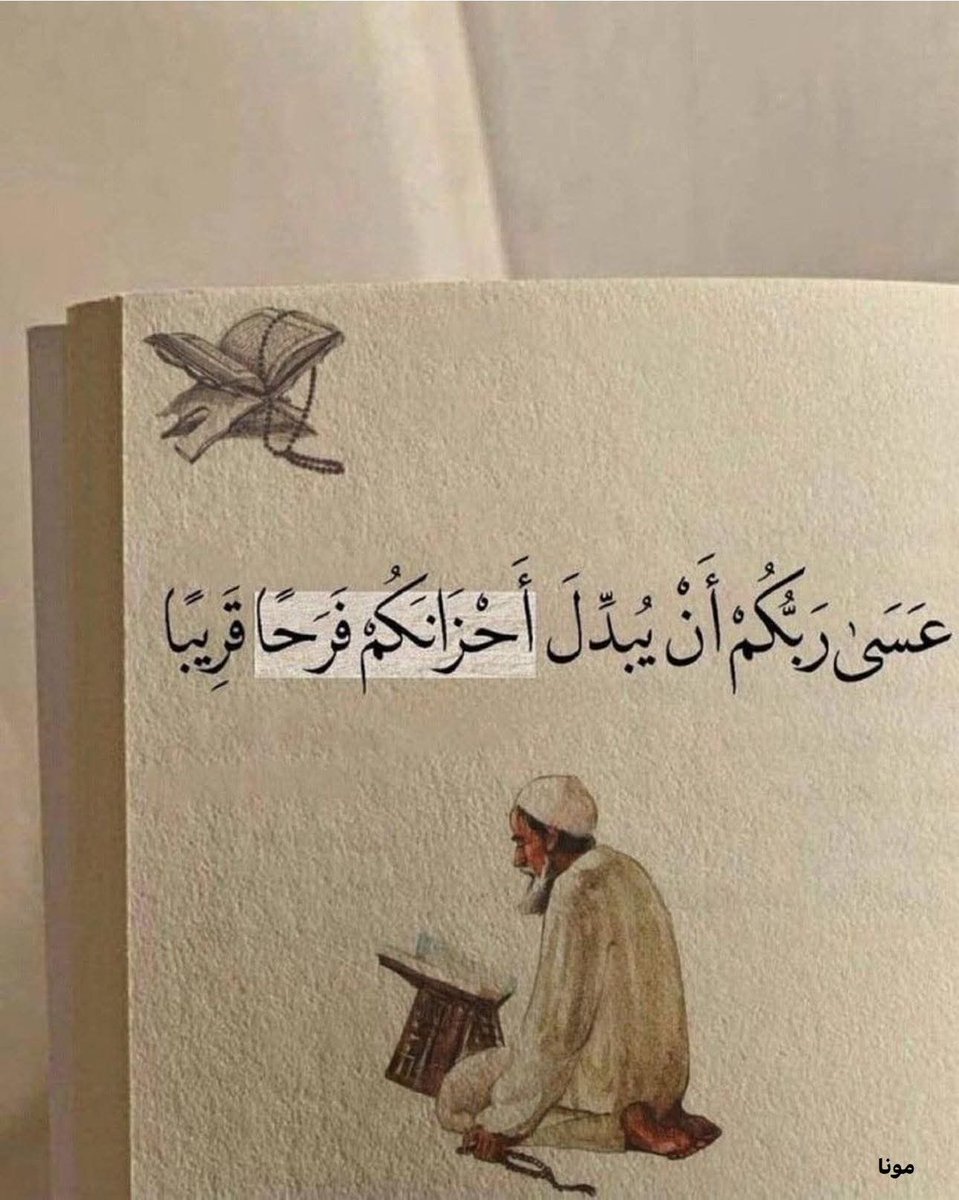 عَسَىٰ رَبُّكُمْ أَنْ يُبدِّلَ أَحْزَانَكُمْ فَرَحًا قَرِيبًا
مونا